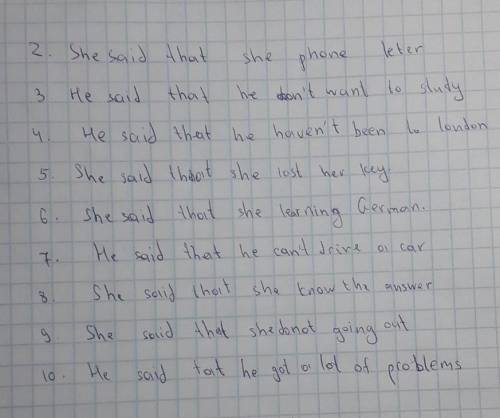 2. She said that she phone leter
3 He said that he don't want to study
4. He said that he haven't been to london
5. She said that she lost her key.
6. She said that she learning German.
7. He said that he can't drive a car
8. She said that she know the answer
9. She said that she do not going out
10. He said tat he got a lot of problems